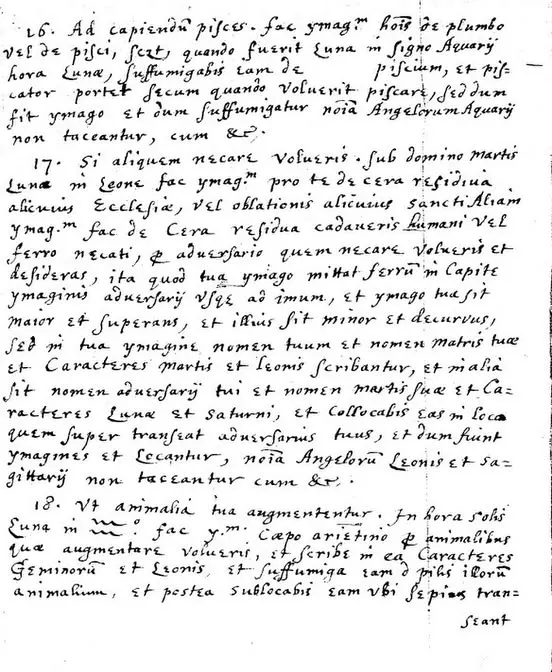 16. Ad capiendũ pisces. fac ymag.ᵐ hoĩs de plumbo
vel de pisci, sczt, quando fuerit Luna in signo Aquarij
hora Lunæ, suffumigabis eam de piscium, et pis=
cator portet secum quando voluerit piscare, sed dum
fit ymago et dum suffumigatur noĩa Angelorum Aquarij
non taceantur, cum &c.
17. Si aliquem necare volueris. sub domino martis
Luna in Leone fac ymag.ᵐ pro te de cera residua
alicuius Ecclesiæ, vel oblationis alicuius sancti Aliam
ymag.ᵐ fac de Cera residua cadaveris humani vel
ferro necati, ꝓ adversario quem necare volueris et
desideras, ita quod tua ymago mittat ferrũ in Capite
ymaginis adversarij usqe ad imum, et ymago tua sit
maior et superans, et illius sit minor et decurvus,
sed in tua ymagine nomen tuum et nomen matris tuæ
et Caracteres martis et leonis scribantur, et in alia
sit nomen adversarij tui et nomen martis suæ et Ca=
racteres Lunæ et Saturni, et Collocabis eas in loco
quem super transeat adversarius tuus, et dum fiunt
ymagines et Locantur, noĩa Angelorũ Leonis et sa=
gittarij non taceantur cum &c.
18. Ut animalia tua augmententur. In hora solis
Luna in ♒ᵒ. fac y.ᵐ Cæpo arietino ꝓ animalibus
quæ augmentare volueris, et scribe in ea Caracteres
Geminorũ et Leonis, et suffumiga eam d pilis illorũ
animalium, et postea sublocabis eam ubi sepius tran=
seant